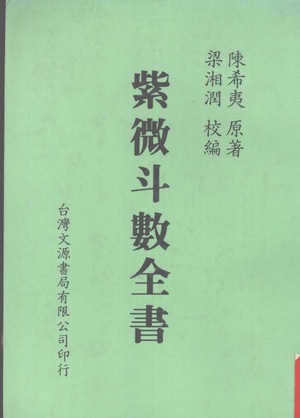 陳希夷 原著
梁湘潤 校編
紫微斗數全書
台灣文源書局有限公司印行